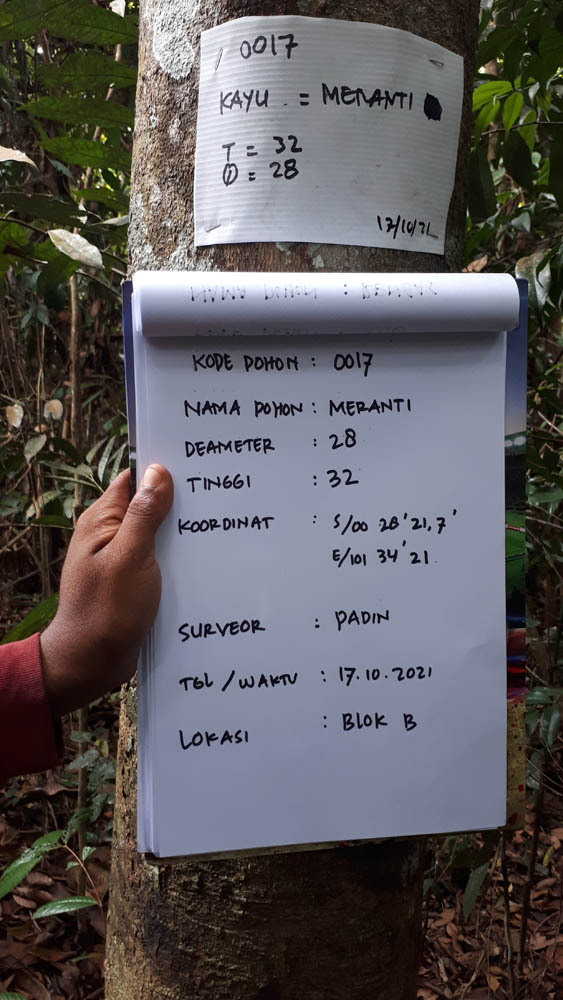 0017
KAYU = MERANTI
T = 32
Ø = 28
17/10/21
KODE POHON : 0017
NAMA POHON : MERANTI
DEAMETER : 28
TINGGI : 32
KOORDINAT : S/00 28'21,7'
E/101 34'21.
SURVEOR : PADIN
TGL/WAKTU : 17.10.2021
LOKASI : BLOK B